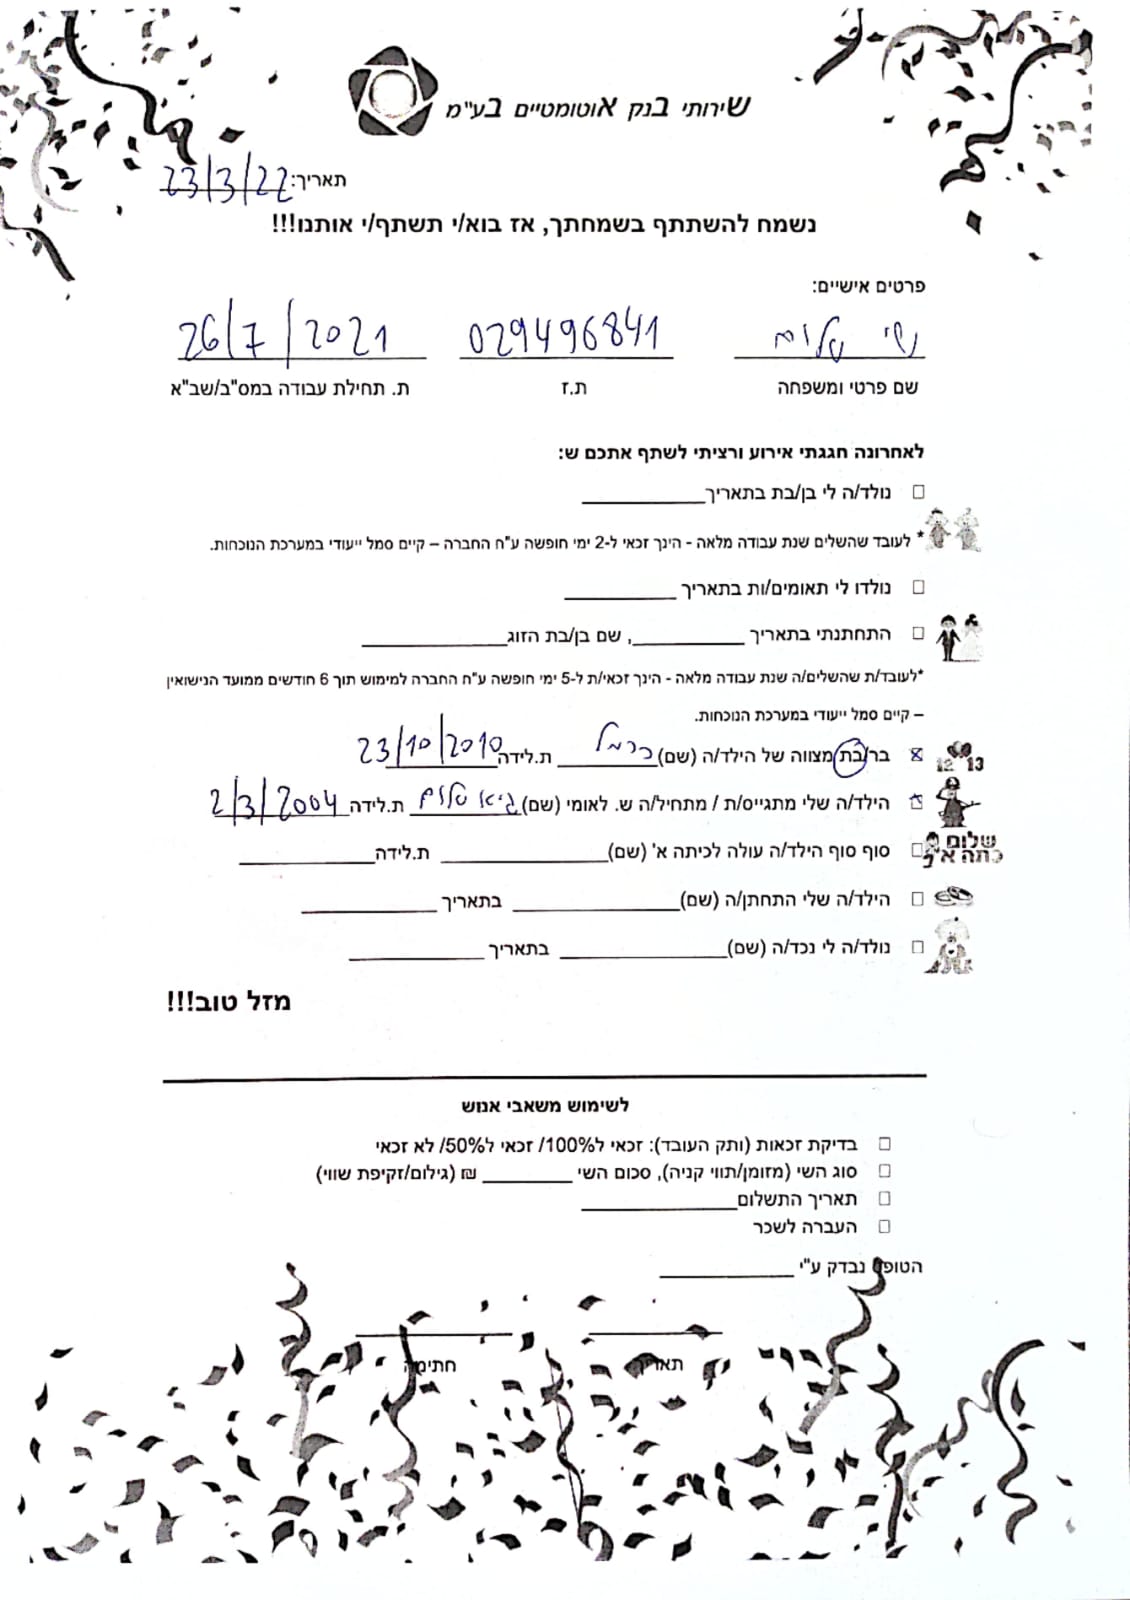 שירותי בנק אוטומטיים בע"מ
תאריך: 23/3/22
נשמח להשתתף בשמחתך, אז בוא/י תשתף/י אותנו!!!
פרטים אישיים:
שי שלום 029496841 26/7/2021
שם פרטי ומשפחה ת.ז ת. תחילת עבודה במס"ב/שב"א
לאחרונה חגגתי אירוע ורציתי לשתף אתכם ש:
נולד/ה לי בן/בת בתאריך
* לעובד שהשלים שנת עבודה מלאה - הינך זכאי ל-2 ימי חופשה ע"ח החברה – קיים סמל ייעודי במערכת הנוכחות.
נולדו לי תאומים/ות בתאריך
התחתנתי בתאריך , שם בן/בת הזוג
*לעובד/ת שהשלים/ה שנת עבודה מלאה - הינך זכאי/ת ל-5 ימי חופשה ע"ח החברה למימוש תוך 6 חודשים ממועד הנישואין
– קיים סמל ייעודי במערכת הנוכחות.
12 13 בר/בת מצווה של הילד/ה (שם) כרמל ת.לידה 23/10/2010
הילד/ה שלי מתגייס/ת / מתחיל/ה ש. לאומי (שם) גיא שלום ת.לידה 2/3/2004
שלום כתה א' סוף סוף הילד/ה עולה לכיתה א' (שם) ת.לידה
הילד/ה שלי התחתן/ה (שם) בתאריך
נולד/ה לי נכד/ה (שם) בתאריך
מזל טוב!!!
לשימוש משאבי אנוש
בדיקת זכאות (ותק העובד): זכאי ל100%/ זכאי ל50%/ לא זכאי
סוג השי (מזומן/תווי קניה), סכום השי ₪ (גילום/זקיפת שווי)
תאריך התשלום
העברה לשכר
הטופס נבדק ע"י
תאריך חתימה